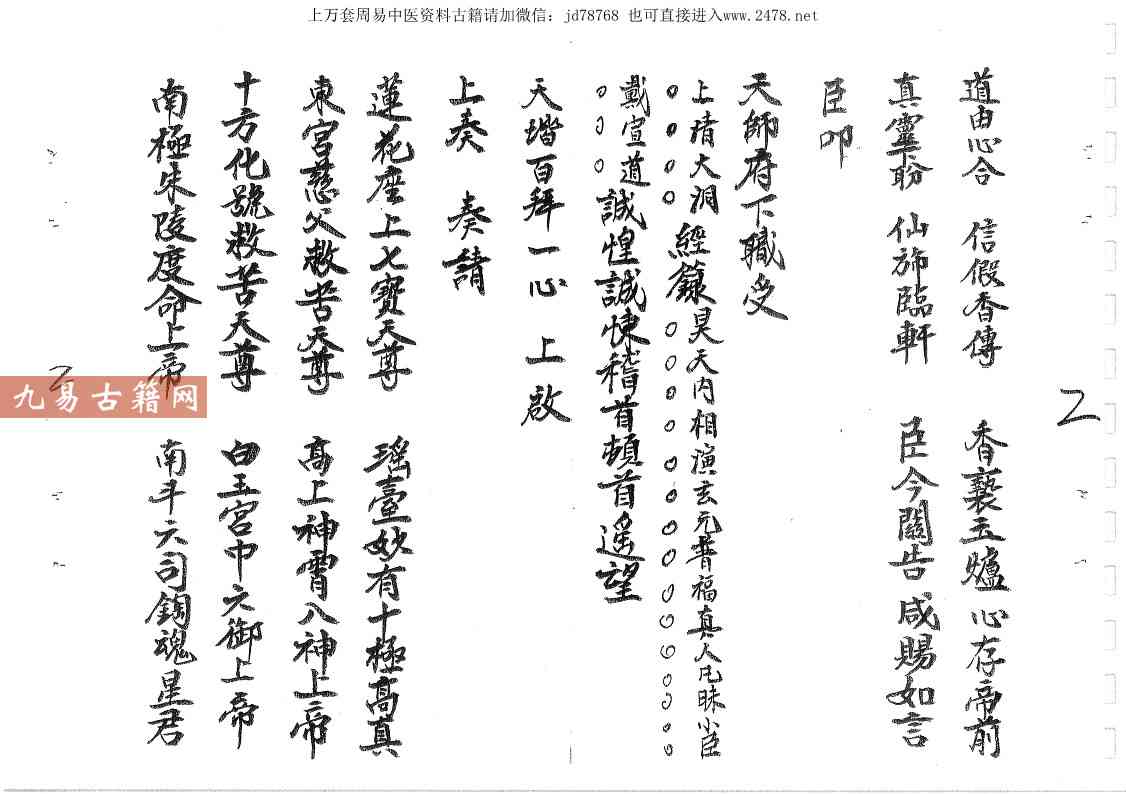 上万套周易中医资料古籍请加微信：jd78768 也可直接进入www.2478.net
道由心合　信假香傳　香爇玉爐　心存帝前
真靈盼　仙旆臨軒　臣今關告　咸賜如言
臣叩
天師府下職受
上清大洞經籙昊天内相演玄元普福真人凡昧小臣
戴宣道誠惶誠悚稽首頓首遙望
天堦百拜一心　上啟
上奏　奏請
蓮花座上七寶天尊　瑶臺妙有十極高真
東宮慈父救苦天尊　高上神霄八神上帝
十方化號救苦天尊　白玉宮中六御上帝
南極朱陵度命上帝　南斗六司鈎魂星君
九易古籍网